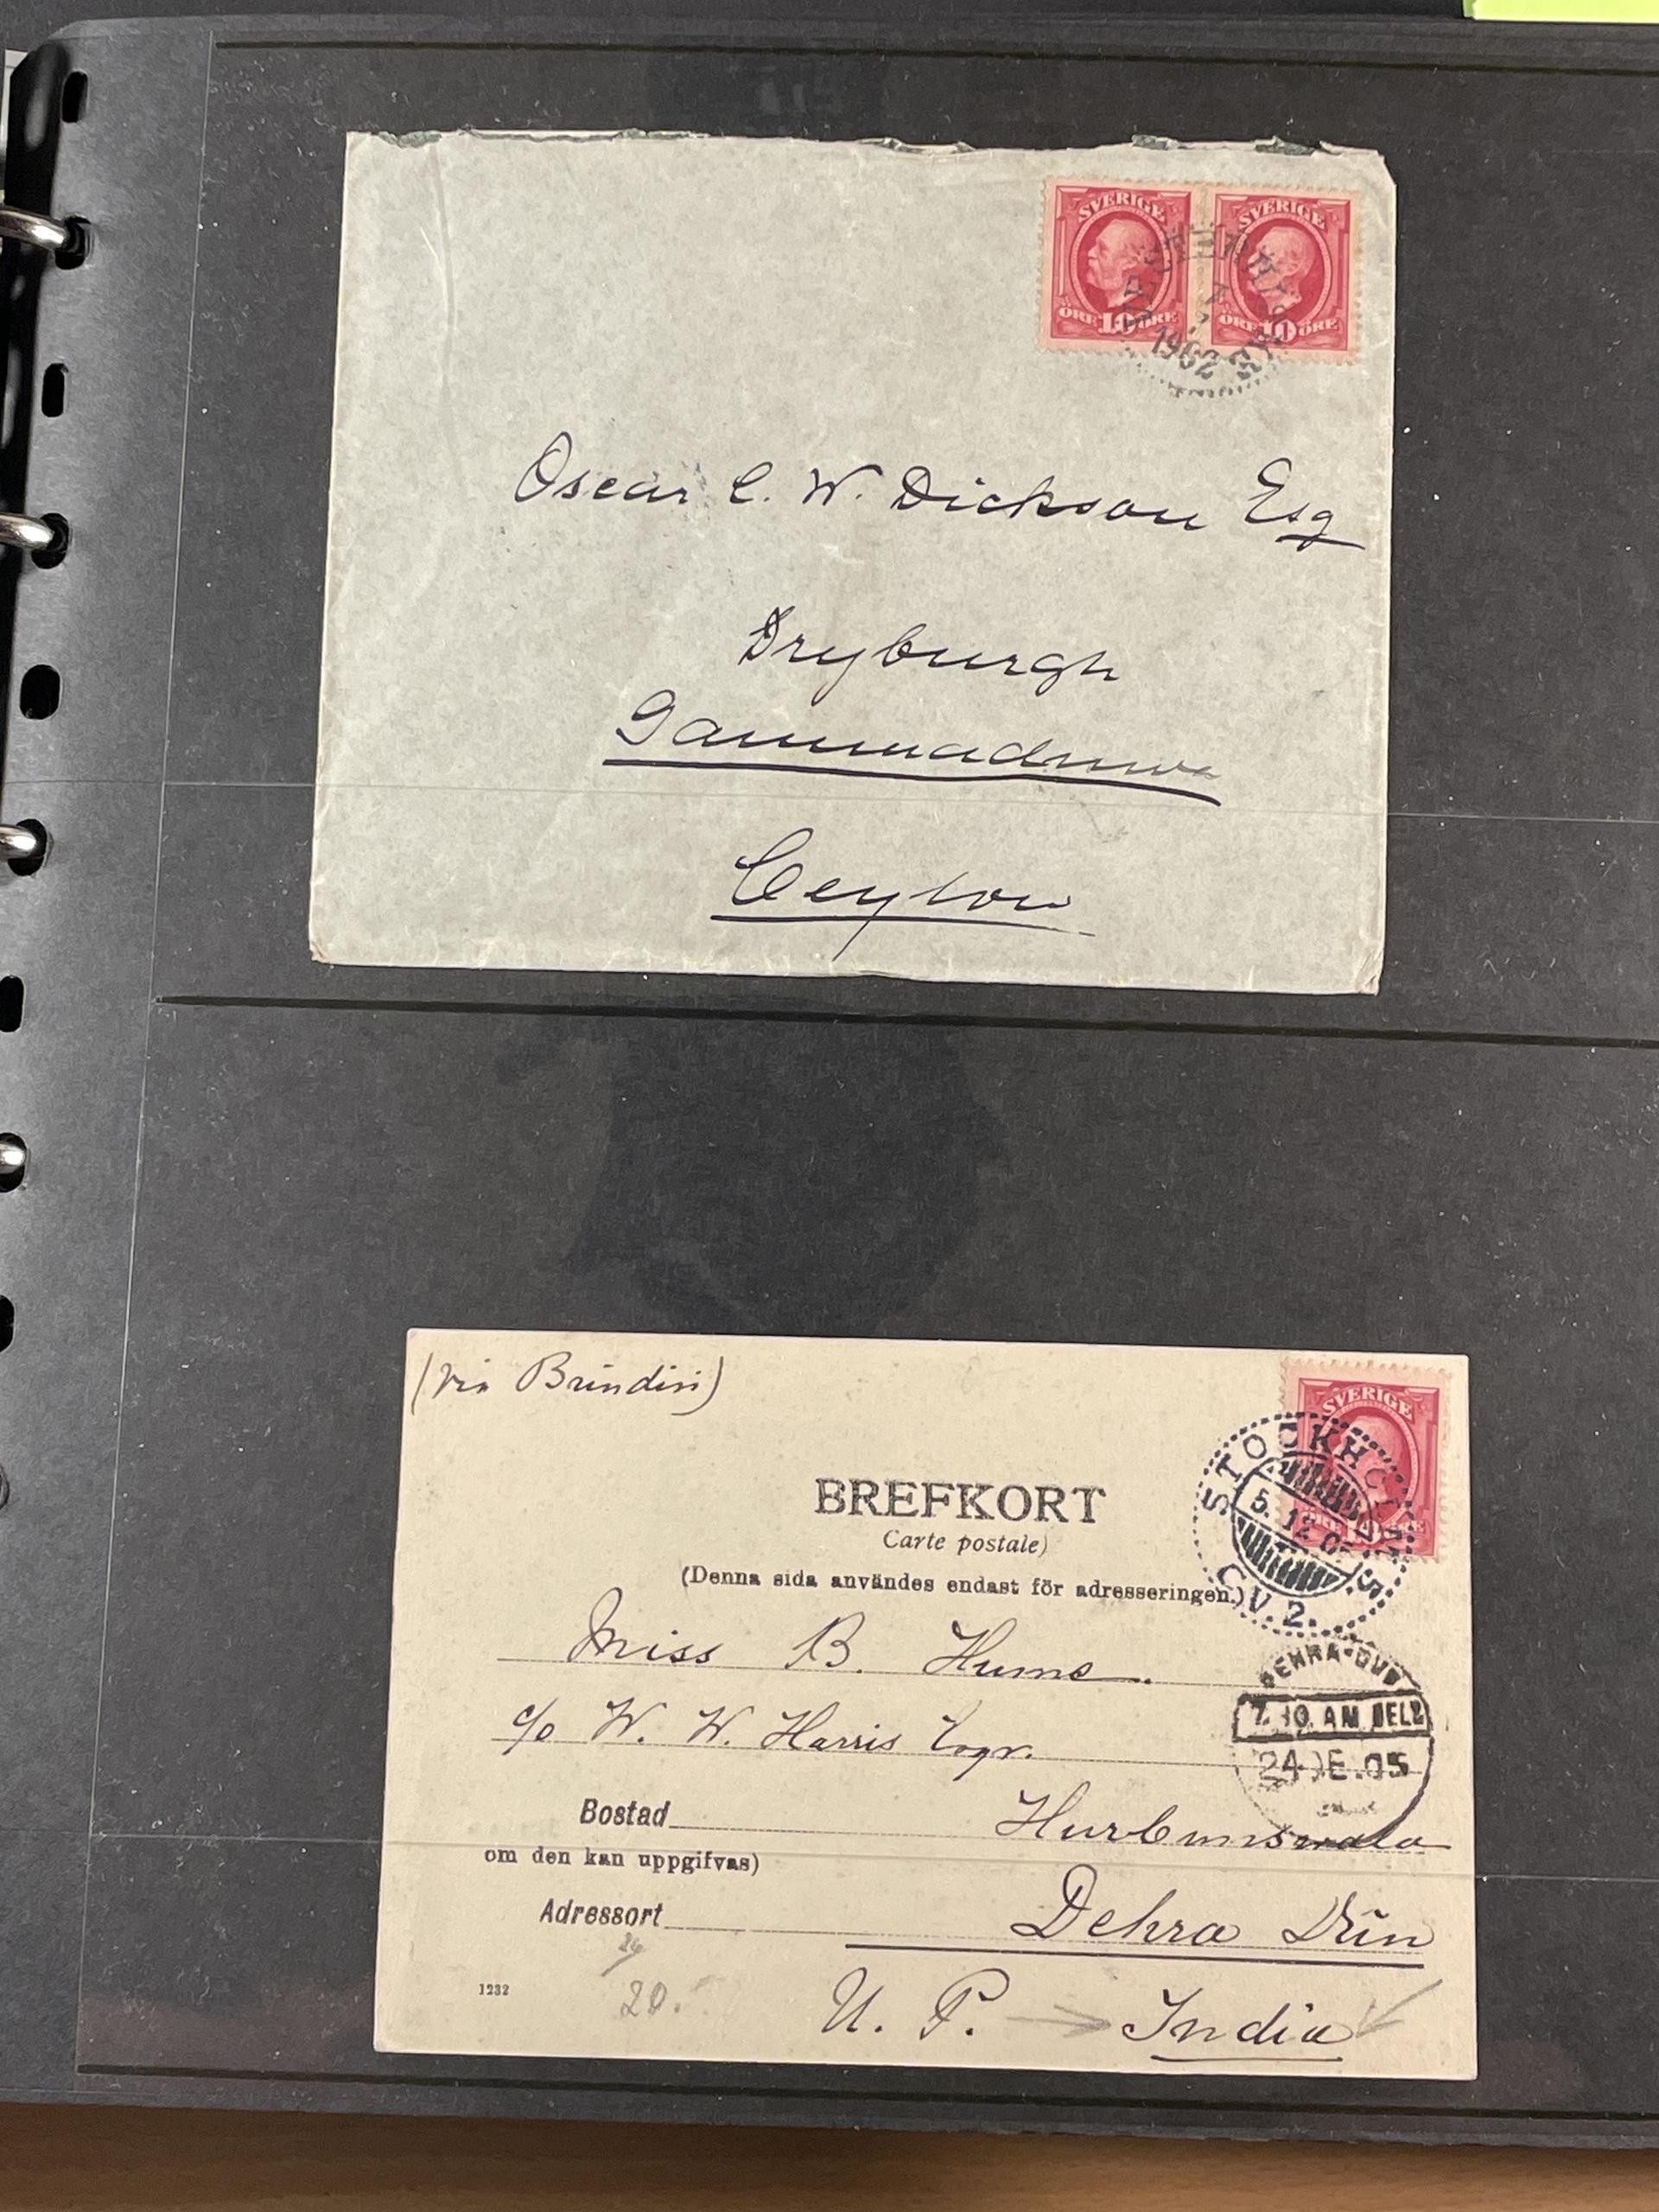 SVERIGE SVERIGE
ÖRE 10 ÖRE ÖRE 10 ÖRE
1902
Oscar C. W. Dickson Esq
Dryburgh
Gammaduwa
Ceylon
(via Brindisi)
SVERIGE
BREFKORT
Carte postale)
(Denna sida användes endast för adresseringen.)
STOCKHOLM
5.12.05
C.V.2.
Miss B. Hume.
DEHRA-DUN
7.30.AM DEL2
24 DE.05
c/o W. W. Harris Esqr.
Bostad Hurbunswala
om den kan uppgifvas)
Adressort Dehra Dūn
1232
20.
U. P. India